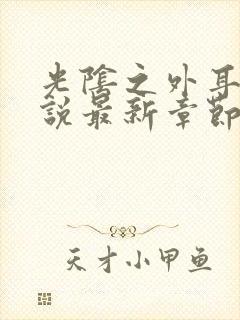 光陰之外耳
說最新章節
天才小甲鱼